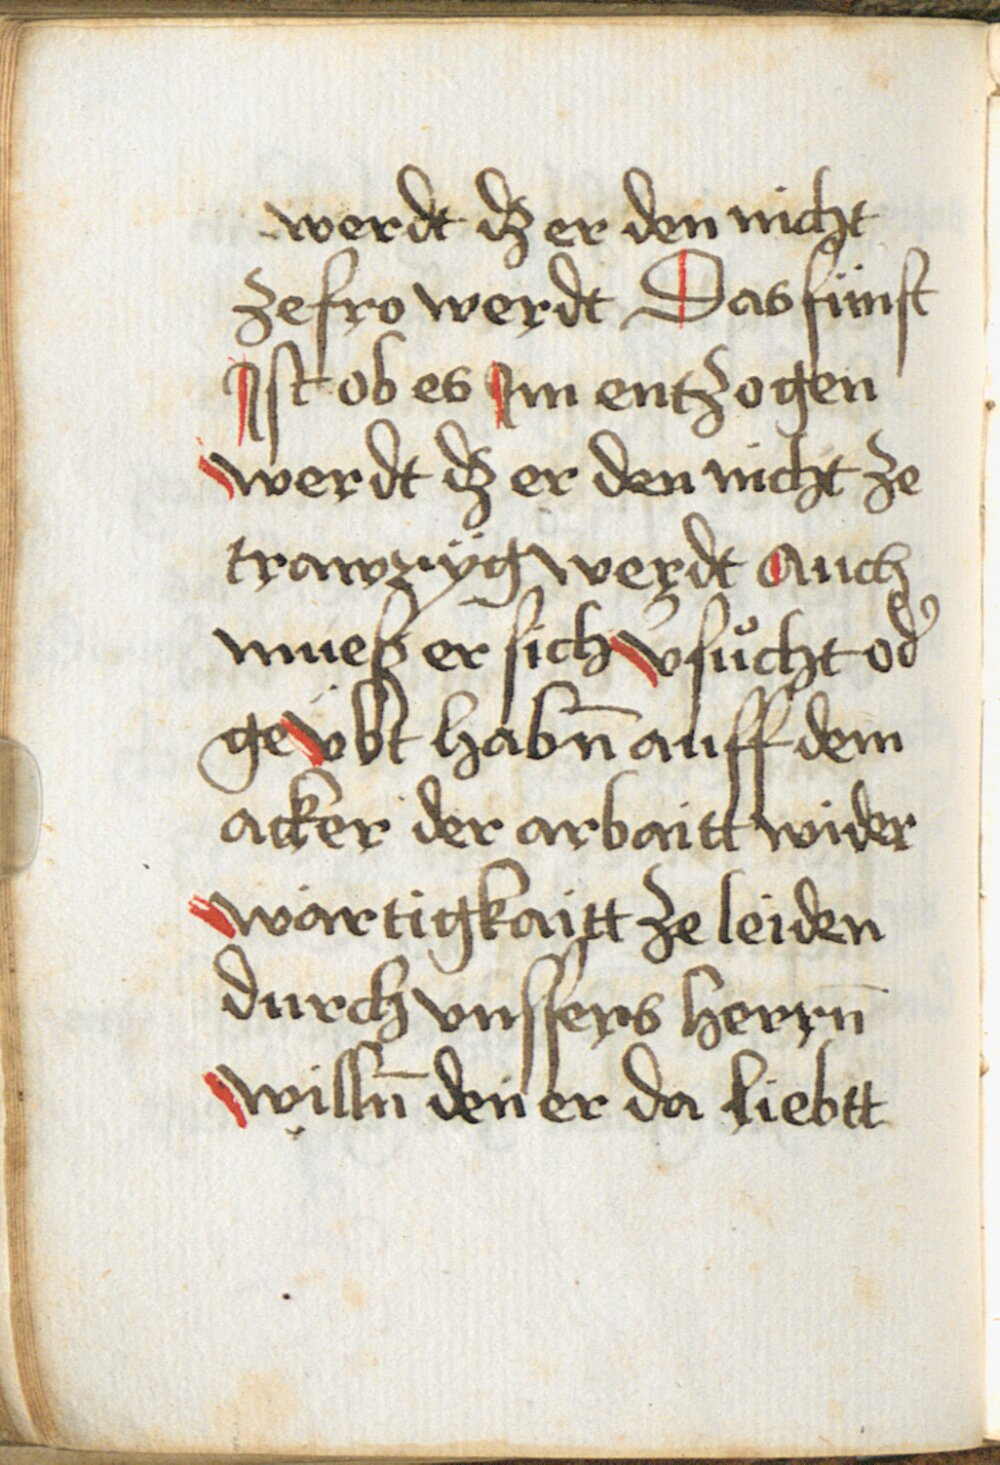 werdt dz er den nicht
ze fro werdt Das fünft
Ist ob es Im entzogen
werdt dz er den nicht ze
trawryg werdt Auch
mueß er sich vsůcht od'
geybt habn̄ auff dem
acker der arbaitt wider
wartigkaitt ze leiden
durch vnssers herrn̄
willn̄ den er da liebtt